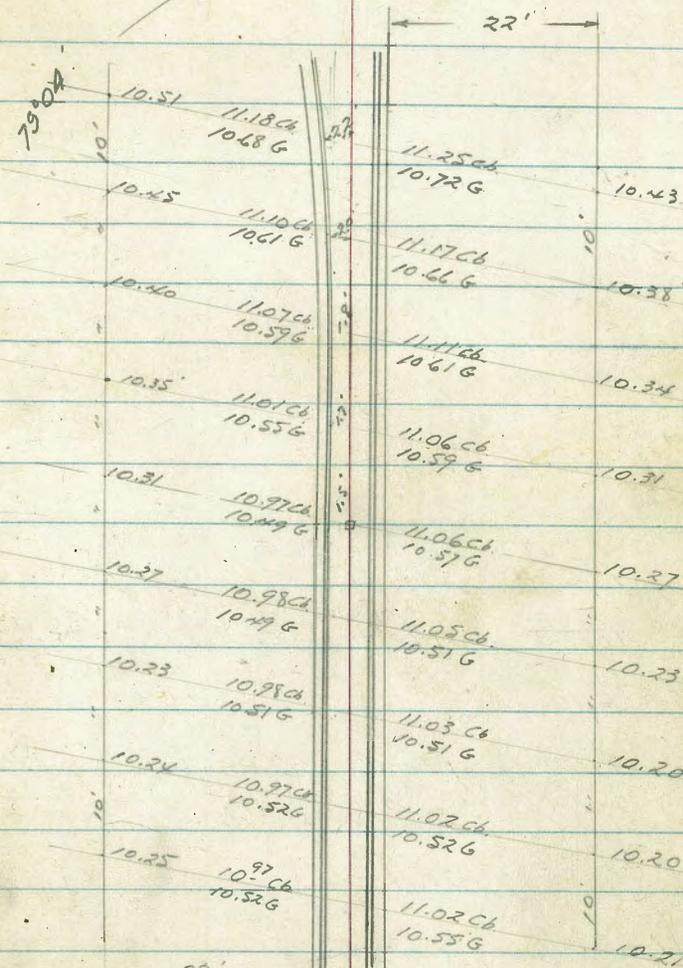 22'
79°04'
10.51
11.18 Cb
10.68 G
11.25 Cb
10.72 G
10.43
10'
10'
10.45
11.10 Cb
10.61 G
11.17 Cb
10.66 G
10.38
10.40
11.07 Cb
10.59 G
11.11 Cb
10.61 G
10.34
10.35
11.01 Cb
10.55 G
11.06 Cb
10.59 G
10.31
10.31
10.97 Cb
10.49 G
11.06 Cb
10.57 G
10.27
10.27
10.98 Cb
10.49 G
11.05 Cb
10.51 G
10.23
10.23
10.98 Cb
10.51 G
11.03 Cb
10.51 G
10.20
10.24
10.97 Cb
10.52 G
11.02 Cb
10.52 G
10.20
10'
10.25
10.97 Cb
10.52 G
11.02 Cb
10.55 G
10'
10.21